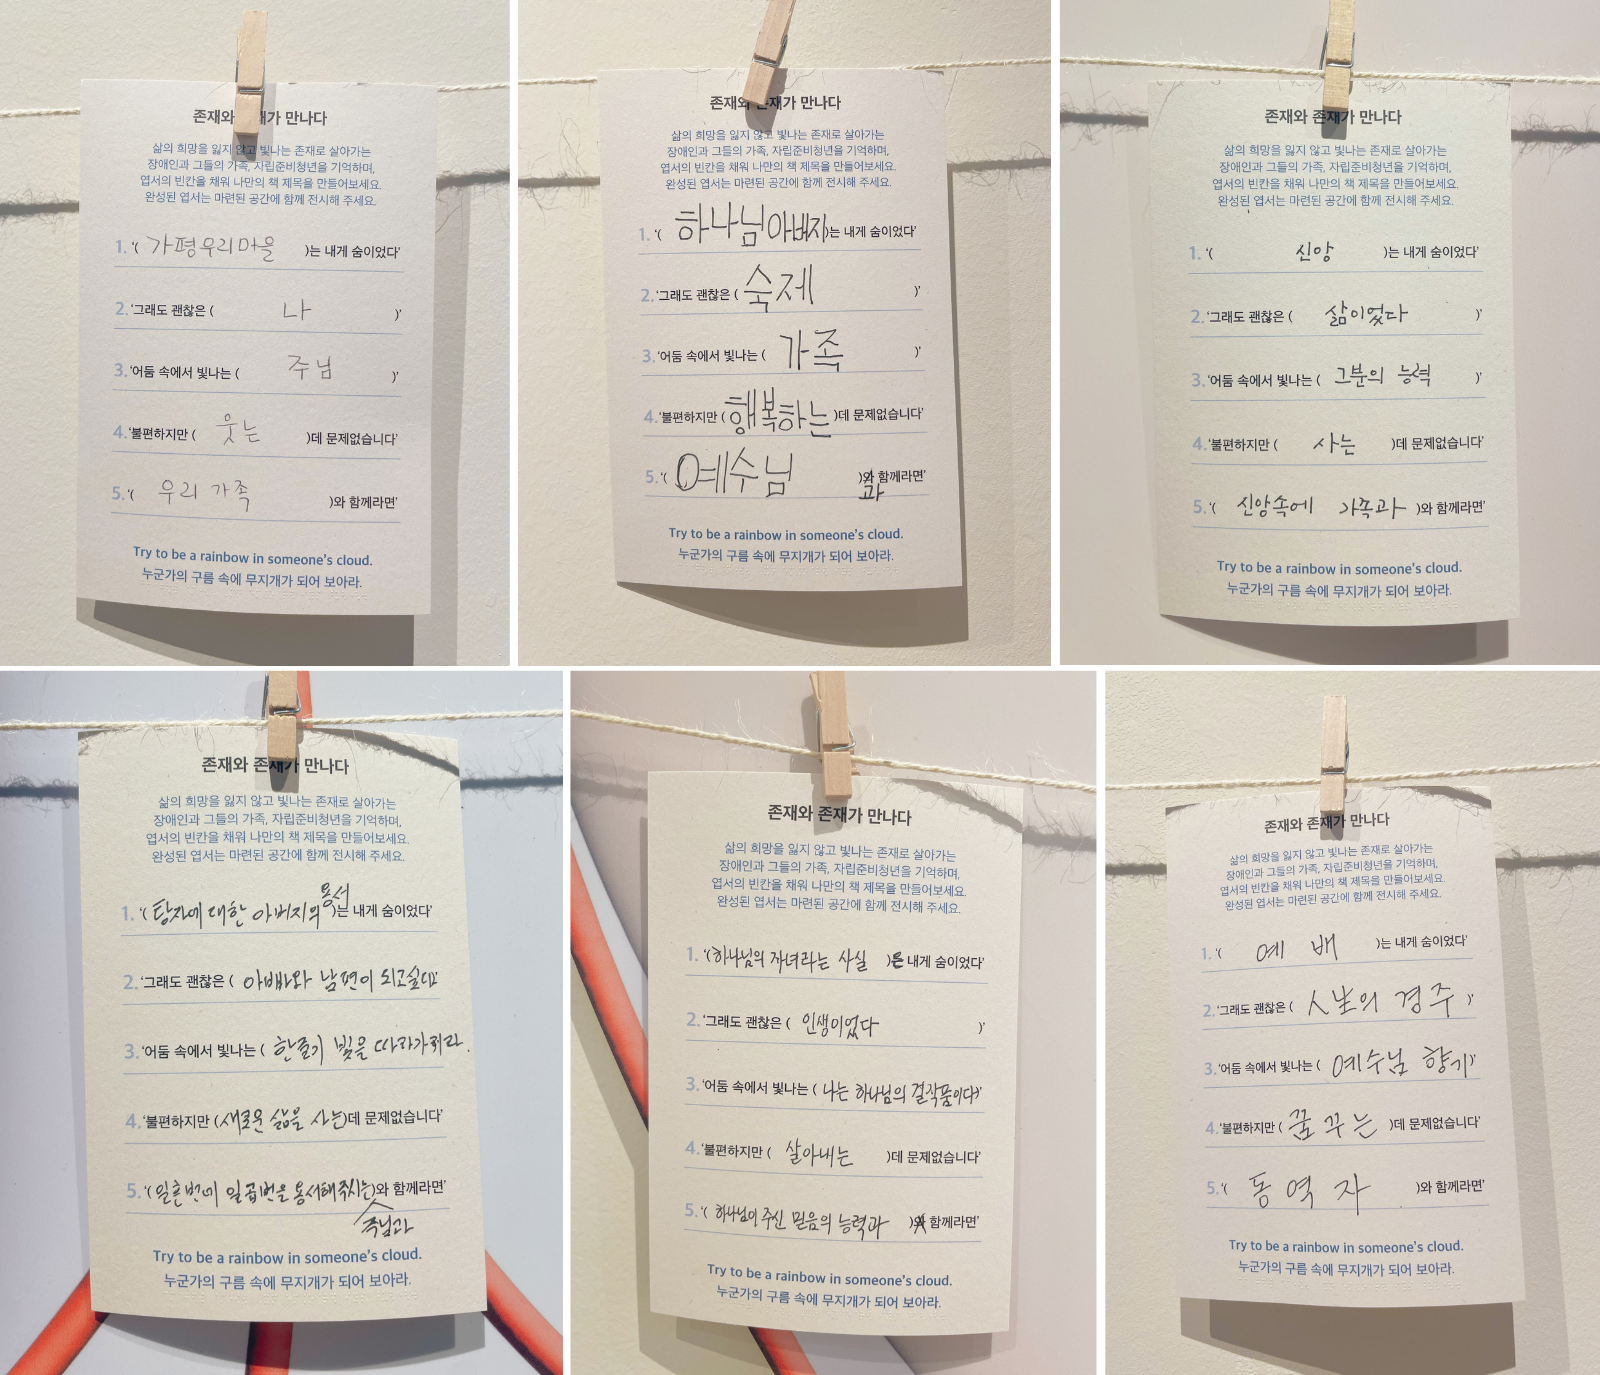 존재와 존재가 만나다
삶의 희망을 잃지 않고 빛나는 존재로 살아가는
장애인과 그들의 가족, 자립준비청년을 기억하며,
엽서의 빈칸을 채워 나만의 책 제목을 만들어보세요.
완성된 엽서는 마련된 공간에 함께 전시해 주세요.
1. '( 가평우리마을 )는 내게 숨이었다'
2. '그래도 괜찮은 ( 나 )'
3. '어둠 속에서 빛나는 ( 주님 )'
4. '불편하지만 ( 웃는 )데 문제없습니다'
5. '( 우리 가족 )와 함께라면'
Try to be a rainbow in someone's cloud.
누군가의 구름 속에 무지개가 되어 보아라.
존재와 존재가 만나다
삶의 희망을 잃지 않고 빛나는 존재로 살아가는
장애인과 그들의 가족, 자립준비청년을 기억하며,
엽서의 빈칸을 채워 나만의 책 제목을 만들어보세요.
완성된 엽서는 마련된 공간에 함께 전시해 주세요.
1. '( 하나님아버지)는 내게 숨이었다'
2. '그래도 괜찮은 ( 숙제 )'
3. '어둠 속에서 빛나는 ( 가족 )'
4. '불편하지만 ( 행복하는 )데 문제없습니다'
5. '( 예수님 )와 함께라면'
과
Try to be a rainbow in someone's cloud.
누군가의 구름 속에 무지개가 되어 보아라.
존재와 존재가 만나다
삶의 희망을 잃지 않고 빛나는 존재로 살아가는
장애인과 그들의 가족, 자립준비청년을 기억하며,
엽서의 빈칸을 채워 나만의 책 제목을 만들어보세요.
완성된 엽서는 마련된 공간에 함께 전시해 주세요.
1. '( 신앙 )는 내게 숨이었다'
2. '그래도 괜찮은 ( 삶이었다 )'
3. '어둠 속에서 빛나는 ( 그분의 능력 )'
4. '불편하지만 ( 사는 )데 문제없습니다'
5. '( 신앙속에 가족과 )와 함께라면'
Try to be a rainbow in someone's cloud.
누군가의 구름 속에 무지개가 되어 보아라.
존재와 존재가 만나다
삶의 희망을 잃지 않고 빛나는 존재로 살아가는
장애인과 그들의 가족, 자립준비청년을 기억하며,
엽서의 빈칸을 채워 나만의 책 제목을 만들어보세요.
완성된 엽서는 마련된 공간에 함께 전시해 주세요.
용서
1. '( 탕자에 대한 아버지의 )는 내게 숨이었다'
2. '그래도 괜찮은 ( 아빠와 남편이 되고싶다)'
3. '어둠 속에서 빛나는 ( 한줄기 빛을 따라가리라.
4. '불편하지만 (새로운 삶을 사는)데 문제없습니다'
5. '( 일흔번에 일곱번을 용서해주시는)와 함께라면'
주님과
Try to be a rainbow in someone's cloud.
누군가의 구름 속에 무지개가 되어 보아라.
존재와 존재가 만나다
삶의 희망을 잃지 않고 빛나는 존재로 살아가는
장애인과 그들의 가족, 자립준비청년을 기억하며,
엽서의 빈칸을 채워 나만의 책 제목을 만들어보세요.
완성된 엽서는 마련된 공간에 함께 전시해 주세요.
1. '(하나님의 자녀라는 사실 )은 내게 숨이었다'
2. '그래도 괜찮은 ( 인생이었다 )'
3. '어둠 속에서 빛나는 ( 나는 하나님의 걸작품이다)'
4. '불편하지만 ( 살아내는 )데 문제없습니다'
5. '( 하나님이 주신 믿음의 능력과 )와 함께라면'
Try to be a rainbow in someone's cloud.
누군가의 구름 속에 무지개가 되어 보아라.
존재와 존재가 만나다
삶의 희망을 잃지 않고 빛나는 존재로 살아가는
장애인과 그들의 가족, 자립준비청년을 기억하며,
엽서의 빈칸을 채워 나만의 책 제목을 만들어보세요.
완성된 엽서는 마련된 공간에 함께 전시해 주세요.
1. '( 예배 )는 내게 숨이었다'
2. '그래도 괜찮은 ( 人生의 경주 )'
3. '어둠 속에서 빛나는 ( 예수님 향기)'
4. '불편하지만 ( 꿈꾸는 )데 문제없습니다'
5. '( 동역자 )와 함께라면'
Try to be a rainbow in someone's cloud.
누군가의 구름 속에 무지개가 되어 보아라.